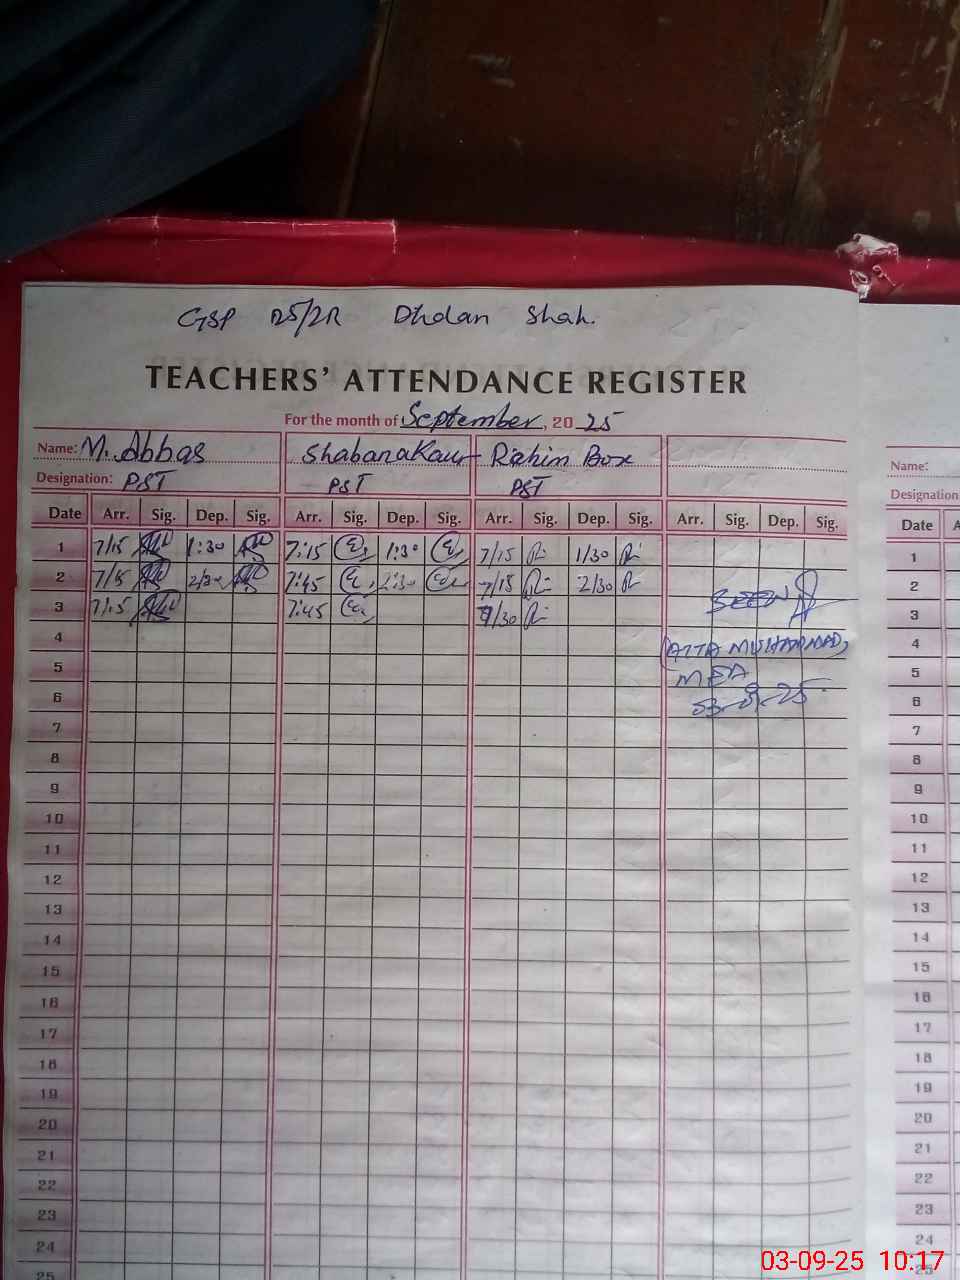 GSP 25/2R Dhdan Shah.
TEACHERS' ATTENDANCE REGISTER
For the month of September, 2025
Name: M. Abbas Shabana Kausr Rahim Box
Designation: PST PST PST
Date Arr. Sig. Dep. Sig. Arr. Sig. Dep. Sig. Arr. Sig. Dep. Sig. Arr. Sig. Dep. Sig.
1 7/15 1:30 7:15 1:30 7/15 1/30
2 7/15 2/30 7:45 2:30 7/15 2/30
3 7/15 7:45 7/30 SEEN
4 (ATTA MUHAMMAD,
5 MEA
6 03-09-25
7
8
9
10
11
12
13
14
15
16
17
18
19
20
21
22
23
24
25
Name:
Designation
Date A
1
2
3
4
5
6
7
8
9
10
11
12
13
14
15
16
17
18
19
20
21
22
23
24
25
03-09-25 10:17